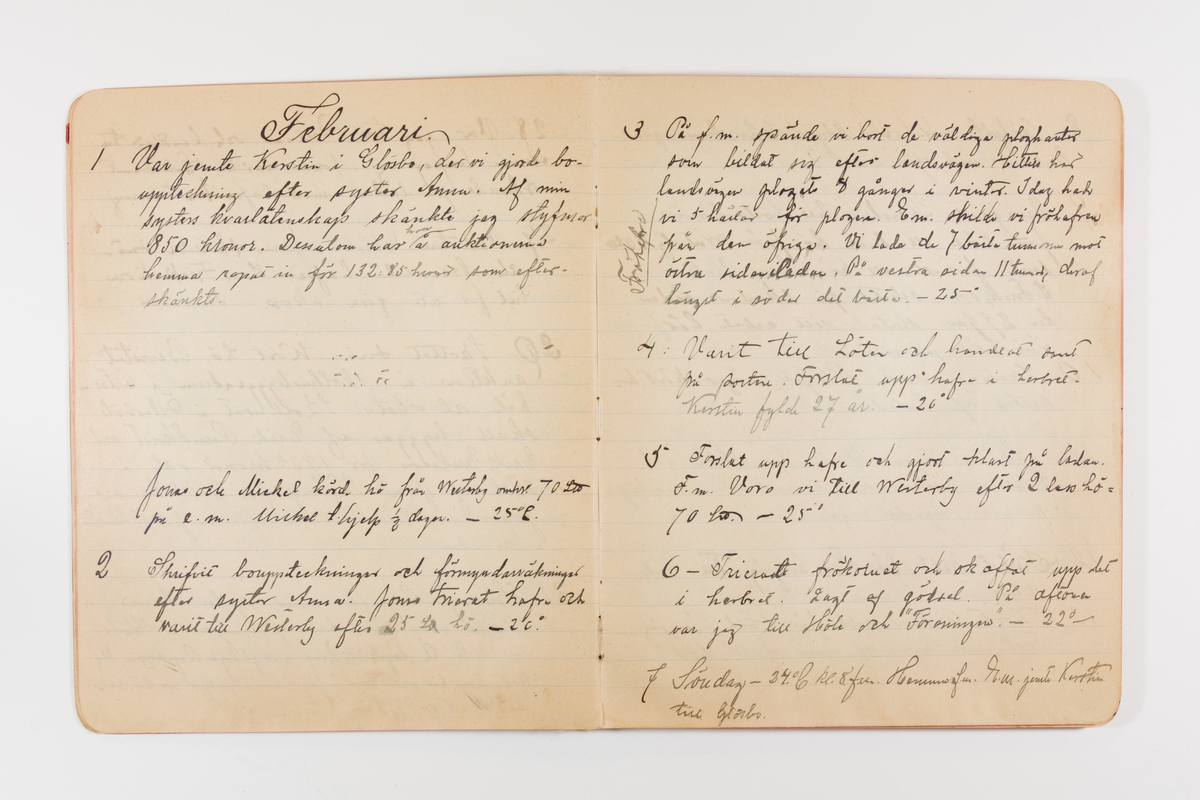 Februari.
1 Var jemte Kerstin i Glosbo, der vi gjorde bo-
uppteckning efter syster Anna. Af min
systers kvarlåtenskap skänkte jag styfmor
850 kronor. Dessutom har hon å auktionerna
hemma ropat in för 132:85 hvar som efter-
skänkts.
Jonas och Mickel körde hö från Westerby 70 
på e.m. Mickel t. hjelp ½ dagen. – 25°C.
2 Skrifvit bouppteckningar och förmyndarräkningar
efter syster Anna. Jonas trierat hafre och
varit till Westerby efter 25 hö. – 20°.
3 På f.m. spände vi bort de väldiga plogkanter
som bildat sig efter landsvägen. Hittills har
landsvägen plogats 8 gånger i vinter. Idag hade
vi 5 hästar för plogen. Em. skilde vi fröhafren
från den öfriga. Vi lade de 7 bästa tunnorna mot
östra sidan i ladan. På vestra sidan 11 tunnor, deraf
längst i söder det bästa. – 25°
Fröhafre
4: Varit till Löten och handlat samt
på posten. Forslat upp hafre i herbret.
Kerstin fylde 27 år. – 20°
5 Forslat upp hafre och gjort klart på ladan.
F.m. Voro vi till Westerby efter 2 lass hö =
70 – 25°
6 – Trierat frökornet och skaffat upp det
i herbret. Lagt af gödsel. På aftonen
var jag till Höle och "Föreningen". – 22° –
7 Söndag – 24°C kl. 8 f.m. Hemma f.m. E.m. jemte Kerstin
till Glosbo.